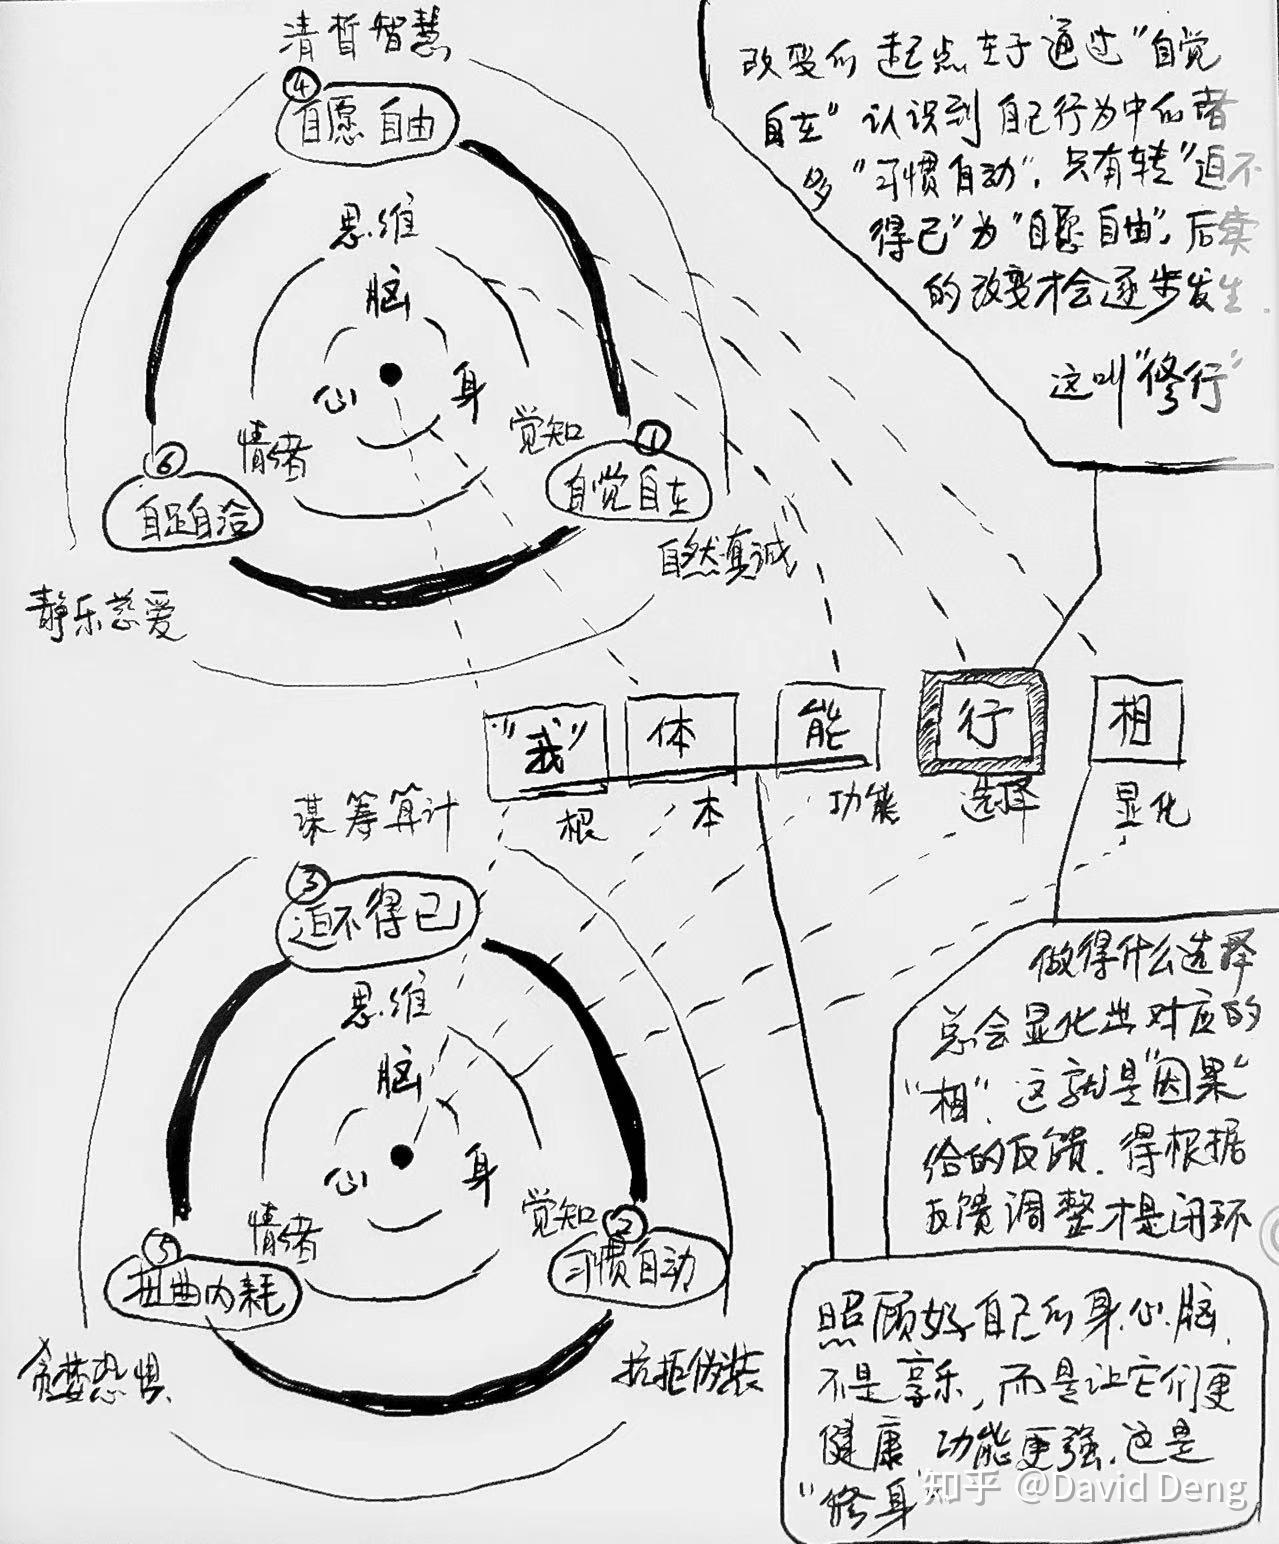 清晢智慧
④
自愿自由
思维
脑
心
身
情绪
觉知
⑥
自足自洽
①
自觉自在
自然真诚
静乐慈爱
改变的起点在于通过"自觉
自在"认识到自己行为中的诸
多"习惯自动",只有转"迫不
得已"为"自愿自由",后续
的改变才会逐步发生.
这叫"修行"
"我"
体
能
行
相
根
本
功能
选择
显化
谋筹算计
③
迫不得已
思维
脑
心
身
情绪
觉知
⑤
扭曲内耗
②
习惯自动
贪婪恐惧
抗拒伪装
做得什么选择
总会显化出对应的
"相",这就是"因果"
给的反馈.得根据
反馈调整才是闭环
照顾好自己的身.心.脑,
不是享乐,而是让它们更
健康 功能更强.这是
"修身"
知乎 @David Deng